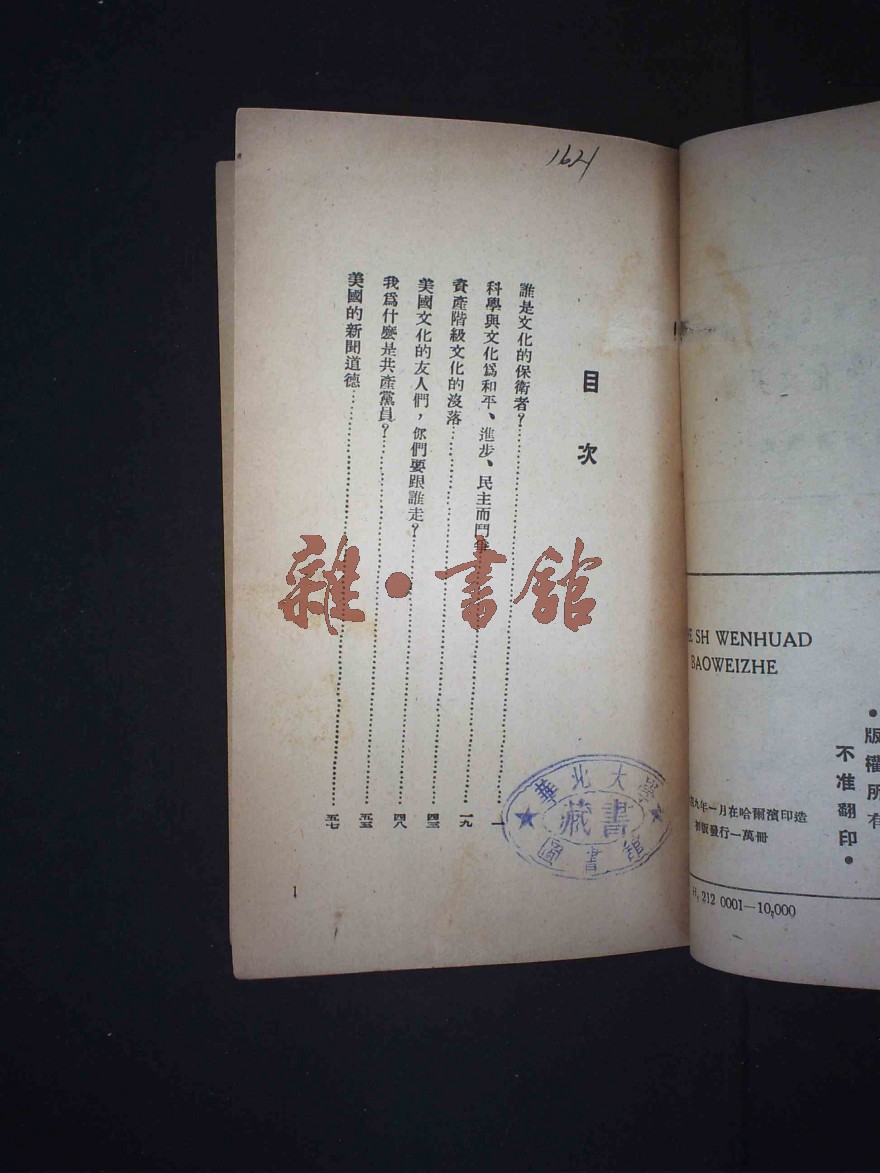 1621
目次
誰是文化的保衛者？……一
科學與文化爲和平、進步、民主而鬥爭……一九
資產階級文化的沒落……四三
美國文化的友人們，你們要跟誰走？……四八
我爲什麼是共產黨員？……五三
美國的新聞道德……五七
1
雜·書館
華北大學
藏書
圖書館
SH WENHUAD
BAOWEIZHE
•版權所有
不准翻印•
九年一月在哈爾濱印造
初版發行一萬冊
212 0001—10,000